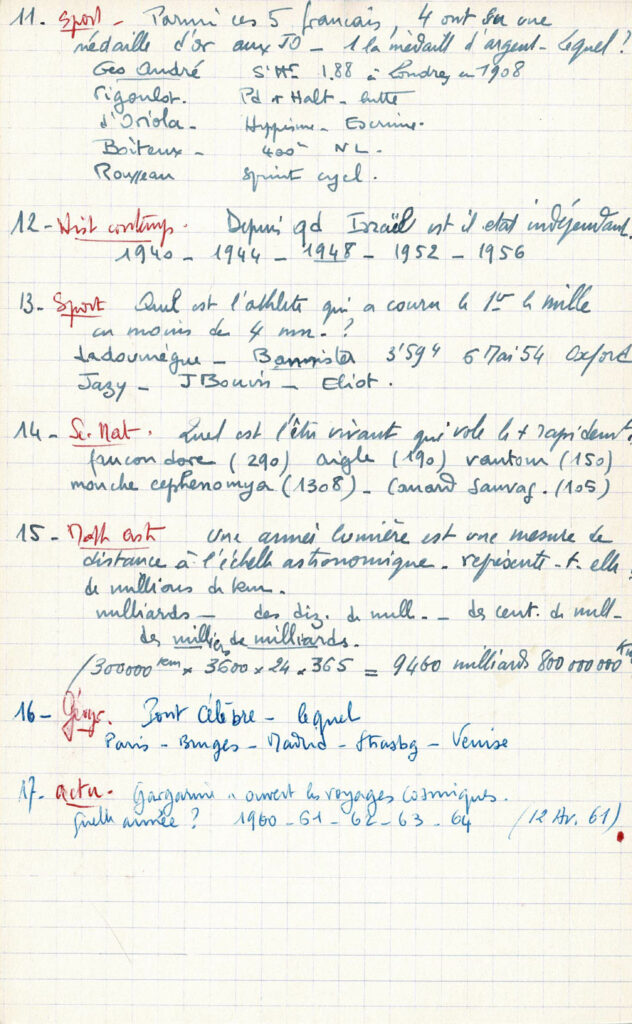 11. Sport - Parmi ces 5 français, 4 ont eu une
médaille d'or aux JO - 1 la médaill d'argent - lequel ?
Géo André St Hr 1.88 à Londres en 1908
Rigoulot. Pd et Halt - lutte
d'Oriola - Hyppisme - Escrime.
Boiteux - 400m NL.
Rousseau sprint cycl.
12 - Hist contemp. Depuis qd Israël est il etat indépendant.
1940 - 1944 - 1948 - 1952 - 1956
13 - Sport Quel est l'athlète qui a couru le 1er le mille
en moins de 4 mn. ?
Ladoumègue - Bannister 3'59" 6 Mai 54 Oxford
Jazy - J Bouin - Eliot.
14 - Sc. Nat. Quel est l'être vivant qui vole le + rapidemt.
faucon doré (290) aigle (190) vautour (150)
mouche cephenomya (1308) - Canard Sauvag. (105)
15 - Math astr Une année lumière est une mesure de
distance à l'échelle astronomique - représente-t-elle
de millions de km.
milliards - des diz. de mill. - des cent. de mill-
des milliers de milliards.
(300000 km × 3600 × 24 × 365 = 9460 milliards 800 000 000 Km
16 - Géogr. Pont Célèbre - lequel
Paris - Bruges - Madrid - Strasbg - Venise
17 - actu - Gargarine a ouvert les voyages cosmiques.
Quelle année ? 1960 - 61 - 62 - 63 - 64 (12 Av. 61)